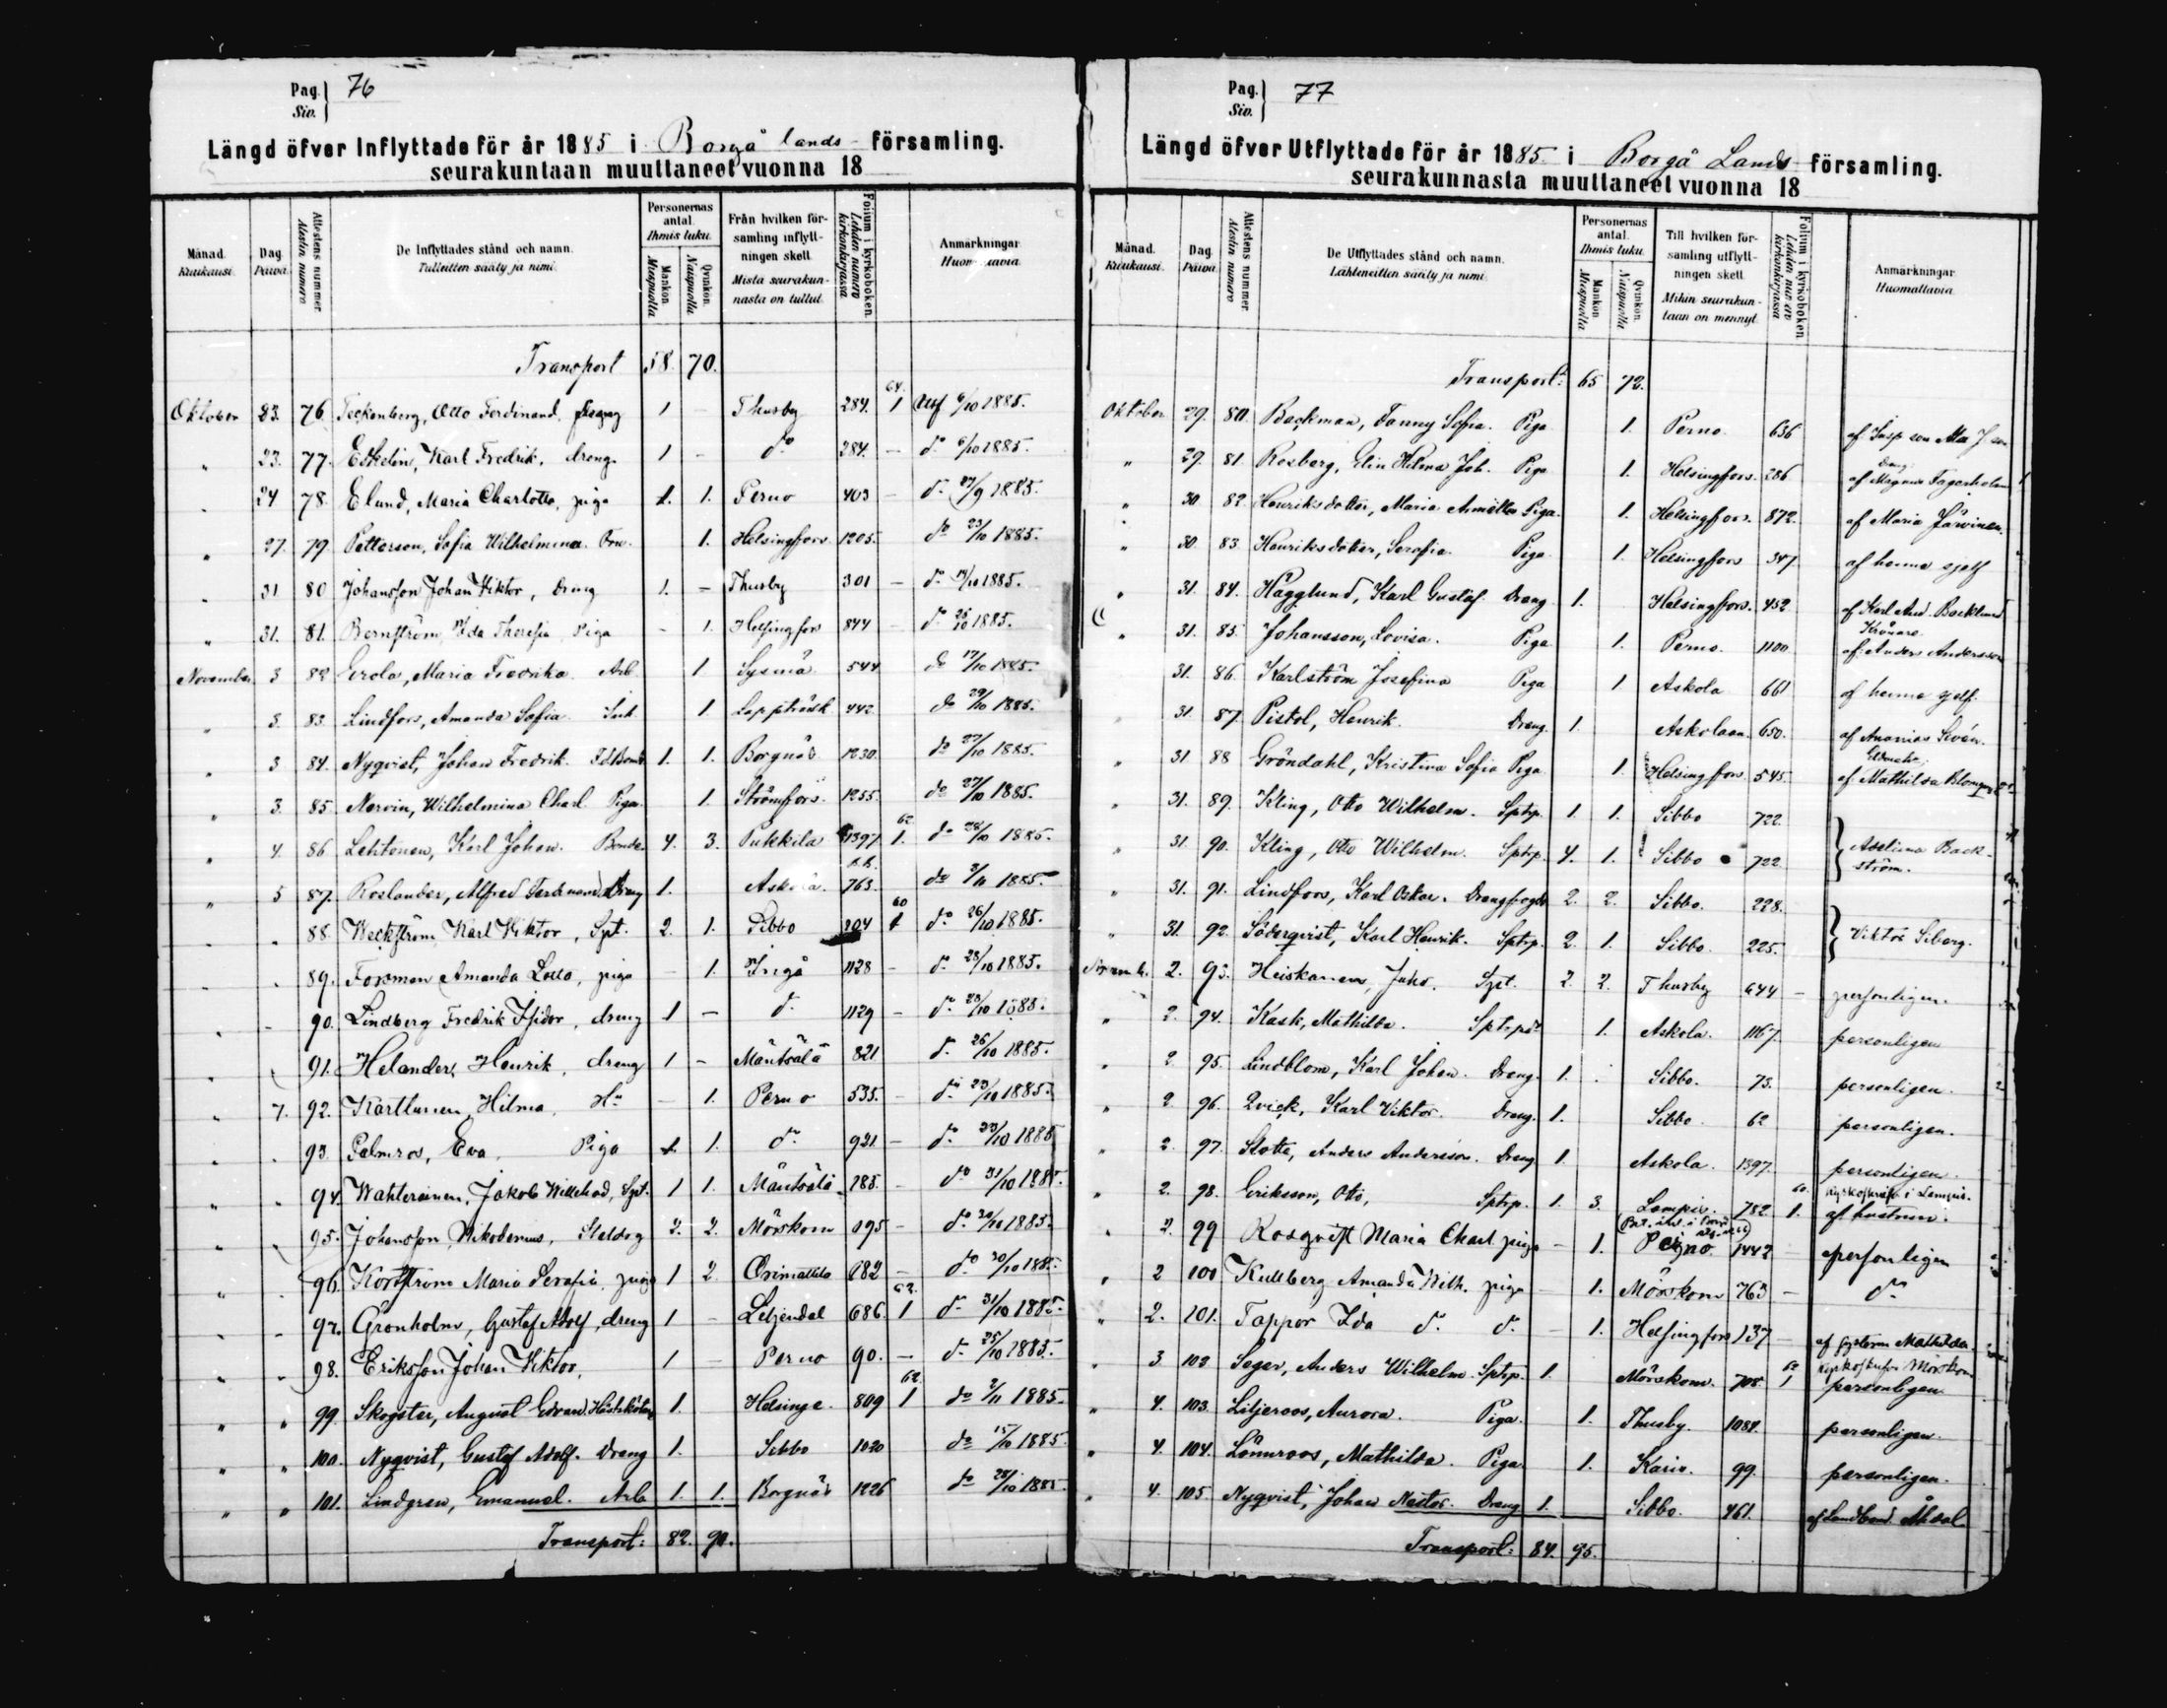 Pag. Siv. } 76
Längd öfver Inflyttade för år 1885 i Borgå lands- församling.
seurakuntaan muuttaneet vuonna 18
Månad. Kuukausi. Dag. Päivä. Attestens nummer. Alestin numero De Inflyttades stånd och namn. Tulleitten sääty ja nimi. Personernas antal. Ihmis luku. Mankön. Miespuolia Qvinkön. Naispuolia Från hvilken församling inflyttningen skett. Mistä seurakunnasta on tullut. Folium i kyrkoboken. Lehden numero kirkonkirjassa Anmärkningar.
Transport 58. 70.
Oktober 23. 76. Teckenberg, Otto Ferdinand. 1 - Thusby 284. 64. 1 Utf 6/10 1885.
" 23. 77. Eskelin, Karl Fredrik, dreng. 1 - do 284. - do 6/10 1885.
" 24 78. Elund, Maria Charlotta, piga 1. 1. Perno 403 - do 27/9 1885.
" 27. 79. Petterson, Sofia Wilhelmina. 1. Helsingfors 1205. do 23/10 1885.
" 31 80 Johansson Johan Viktor, dreng 1. - Thusby 301 - do /10 1885.
" 31. 81. Bernström, Ida Theresia, Piga - 1. Helsingfors 844 - do 26/10 1885.
November 3 82 Erola, Maria Fredrika. Arb 1 Sysmä 544 do 17/10 1885.
" 3. 83. Lindfors, Amanda Sofia. 1. Lappträsk 442. do 29/10 1885.
" 3 84. Nyqvist, Johan Fredrik. 1. 1. Borgnäs 1230. do 27/10 1885.
" 3. 85. Nervin, Wilhelmina Charl. Piga. 1. Strömfors. 1255. do 27/10 1885.
" 4. 86 Lehtonen, Karl Johan. Bonde. 4. 3. Pukkila 1397 62. 1. do 28/10 1885.
" 5 87. Roslander, Alfred Ferdinand. Dreng 1. Askola. 763. do 3/11 1885.
" " 88. Weckström Karl Viktor, Spt. 2. 1. Sibbo 204 60 1 do 26/10 1885.
" " 89. Forsman Amanda Lovisa, piga - 1. Ingå 1128 - do 28/10 1885.
" " 90. Lindberg Fredrik Isidor, dreng 1 - do 1129 - do 28/10 1885.
" " 91. Helander, Henrik, dreng 1 - Mäntsälä 821 do 26/10 1885.
" 7. 92. Karttunen, Hilma, Hu - 1. Perno 535. - do 23/10 1885.
" " 93. Palmros, Eva, Piga 1. 1. do 921 - do 23/10 1885
" " 94. Wahterinen, Jakob Willehad, Spt. 1 1. Mäntsälä 285. - do 31/10 1885.
" " 95. Johansson, Nikodemus, 2. 2. Mörskom 195 - do 30/10 1885.
" " 96. Korström Maria Serafia, piga 1 2. Orimattila 682 - do 30/10 1885.
" " 97. Grönholm, Gustaf Adolf, dreng 1 - Liljendal 686. 62. 1 do 31/10 1885.
" " 98. Eriksson Johan Viktor, 1 - Perno 90. - do 25/10 1885.
" " 99 Skogster, August Edvard. 1. Helsinge. 809 62. 1 do 2/11 1885.
" " 100. Nyqvist, Gustaf Adolf. Dreng 1. Sibbo 1020 do 15/10 1885.
" " 101. Lindgren, Emanuel. Arb 1. 1. Borgnäs 1226 do 28/10 1885.
Transport: 82. 90.
Pag. Siv. } 77
Längd öfver Utflyttade för år 1885. i Borgå Lands- församling.
seurakunnasta muuttaneet vuonna 18
Månad. Kuukausi. Dag. Päivä. Attestens nummer. Alestin numero De Utflyttades stånd och namn. Lähteneitten sääty ja nimi. Personernas antal. Ihmis luku. Mankön. Miespuolia Qvinkön. Naispuolia Till hvilken församling utflyttningen skett. Mihin seurakuntaan on mennyt. Folium i kyrkoboken. Lehden numero kirkonkirjassa Anmärkningar. Huomattavia.
Transport: 65 72.
Oktober 29. 80. Backman, Fanny Sofia. Piga 1. Perno. 636
" 29. 81. Rosberg, Elin Hilma Joh. Piga 1. Helsingfors. 286 af Magnus Fagerholm
" 30 82. Henriksdotter, Maria Amelia Piga. 1. Helsingfors. 872. af Maria Järvinen.
" 30. 83. Henriksdotter, Serafia. Piga 1. Helsingfors 347. af henne sjelf
" 31. 84. Hägglund, Karl Gustaf. Dreng. 1. Helsingfors. 452. af Karl And. Backlund
" 31. 85. Johansson, Lovisa. Piga 1. Perno. 1100 af Anders Andersson
31. 86. Karlström Josefina Piga 1 Askola 661 af henne sjelf.
" 31. 87. Pistol, Henrik. Dreng. 1. Askolaan. 650. af Ananias Sivén.
" 31 88 Gröndahl, Kristina Sofia Piga 1. Helsingfors 545. af Mathilda Blomqvist
" 31. 89. Kling, Otto Wilhelm. Sptp. 1. 1. Sibbo 722.
" 31. 90. Kling, Otto Wilhelm. Sptp. 4. 1. Sibbo 722. } Adelina Backström.
" 31. 91. Lindfors, Karl Oskar. Drengfogde 2. 2. Sibbo. 228.
" 31. 92. Söderqvist, Karl Henrik. Sptp. 2. 1. Sibbo. 225. } Viktor Siberg.
Novemb. 2. 93. Heiskanen, Juho. Spt. 2 2. Thusby 644 - personligen.
" 2. 94. Kask, Mathilda. 1. Askola. 1167. personligen
" 2 95. Lindblom, Karl Johan. Dreng. 1. Sibbo. 73. personligen.
" 2. 96. Qvick, Karl Viktor. Dreng. 1. Sibbo. 62 personligen.
" 2. 97. Slotte, Anders Andersson. Dreng 1. Askola. 1397. personligen.
" 2. 98. Eriksson, Otto, Sptp. 1. 3. Lampis. 782 60. 1. af hustrun.
" 2. 99 Rosqvist Maria Charl piga - 1. Perno 1442 - personligen
" 2 100 Kullberg Amanda Wilh. piga - 1. Mörskom 763 - do
" 2. 101. Tappor Ida do do - 1. Helsingfors 137 - af systern Mathilda
" 3 102 Seger, Anders Wilhelm. Sptp. 1. Mörskom. 708. 62 1 personligen.
" 4. 103. Liljeroos, Aurora. Piga. 1. Thusby. 1084. personligen
" 4. 104. Lönnroos, Mathilda. Piga. 1. Karis. 99. personligen.
" 4. 105. Nyqvist, Johan Nestor. Dreng 1. Sibbo. 461.
Transport: 84. 95.